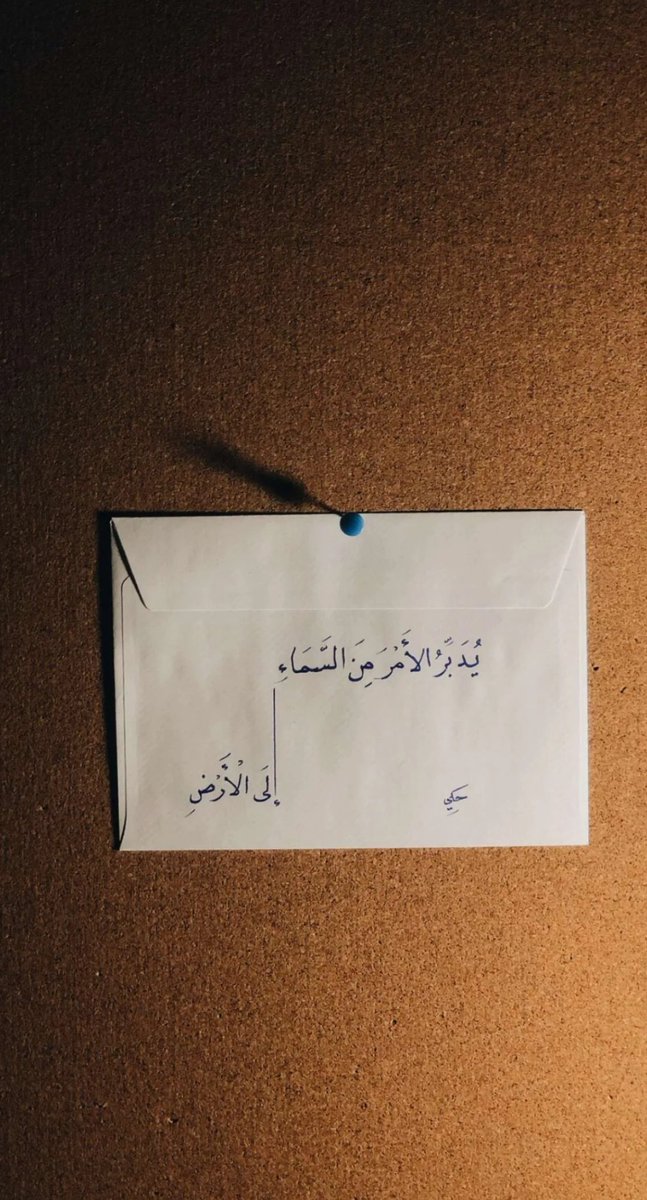 يُدَبِّرُ الأَمْرَ مِنَ السَّمَاءِ
إِلَى الْأَرْضِ